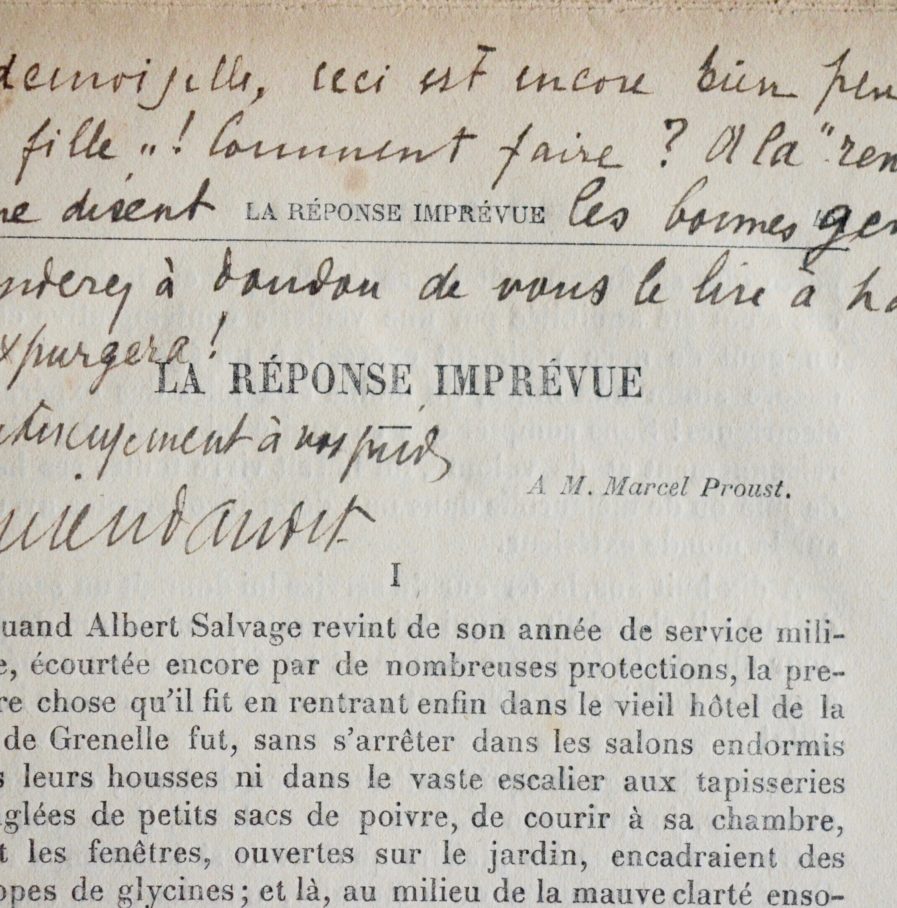 demoiselle, ceci est encore bien peu
fille "! Comment faire ? A la "ren
ne disent les bonnes gen
LA RÉPONSE IMPRÉVUE
nderez à doudou de vous le lire à ha
xpurgera !
LA RÉPONSE IMPRÉVUE
à vos pieds
A M. Marcel Proust.
I
uand Albert Salvage revint de son année de service mili-
e, écourtée encore par de nombreuses protections, la pre-
re chose qu'il fit en rentrant enfin dans le vieil hôtel de la
de Grenelle fut, sans s'arrêter dans les salons endormis
s leurs housses ni dans le vaste escalier aux tapisseries
glées de petits sacs de poivre, de courir à sa chambre,
t les fenêtres, ouvertes sur le jardin, encadraient des
opes de glycines; et là, au milieu de la mauve clarté enso-